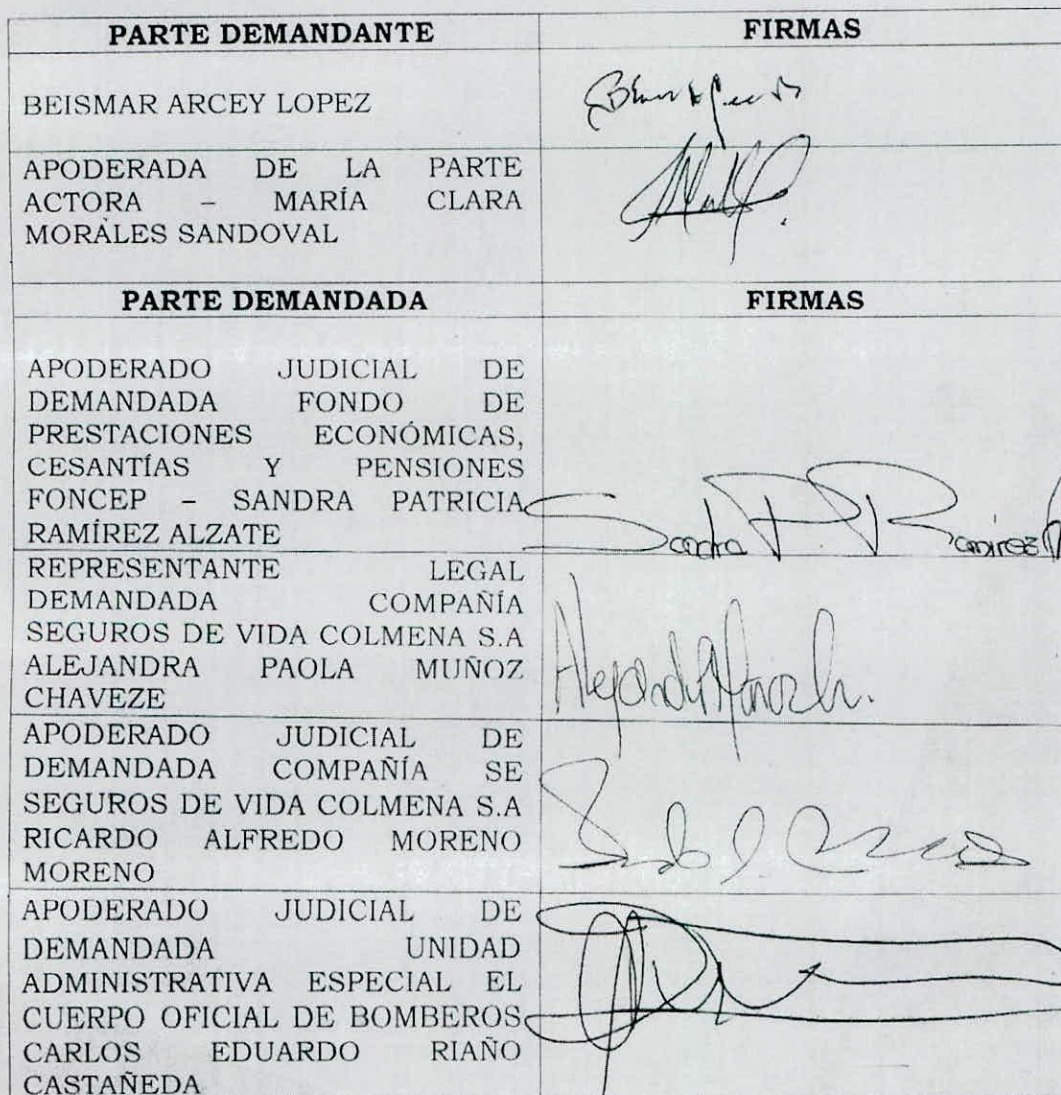 PARTE DEMANDANTE FIRMAS
BEISMAR ARCEY LOPEZ
APODERADA DE LA PARTE
ACTORA – MARÍA CLARA
MORALES SANDOVAL
PARTE DEMANDADA FIRMAS
APODERADO JUDICIAL DE
DEMANDADA FONDO DE
PRESTACIONES ECONÓMICAS,
CESANTÍAS Y PENSIONES
FONCEP – SANDRA PATRICIA
RAMÍREZ ALZATE
Sandra P. Ramirez A
REPRESENTANTE LEGAL
DEMANDADA COMPAÑÍA
SEGUROS DE VIDA COLMENA S.A
ALEJANDRA PAOLA MUÑOZ
CHAVEZE
APODERADO JUDICIAL DE
DEMANDADA COMPAÑÍA SE
SEGUROS DE VIDA COLMENA S.A
RICARDO ALFREDO MORENO
MORENO
APODERADO JUDICIAL DE
DEMANDADA UNIDAD
ADMINISTRATIVA ESPECIAL EL
CUERPO OFICIAL DE BOMBEROS
CARLOS EDUARDO RIAÑO
CASTAÑEDA